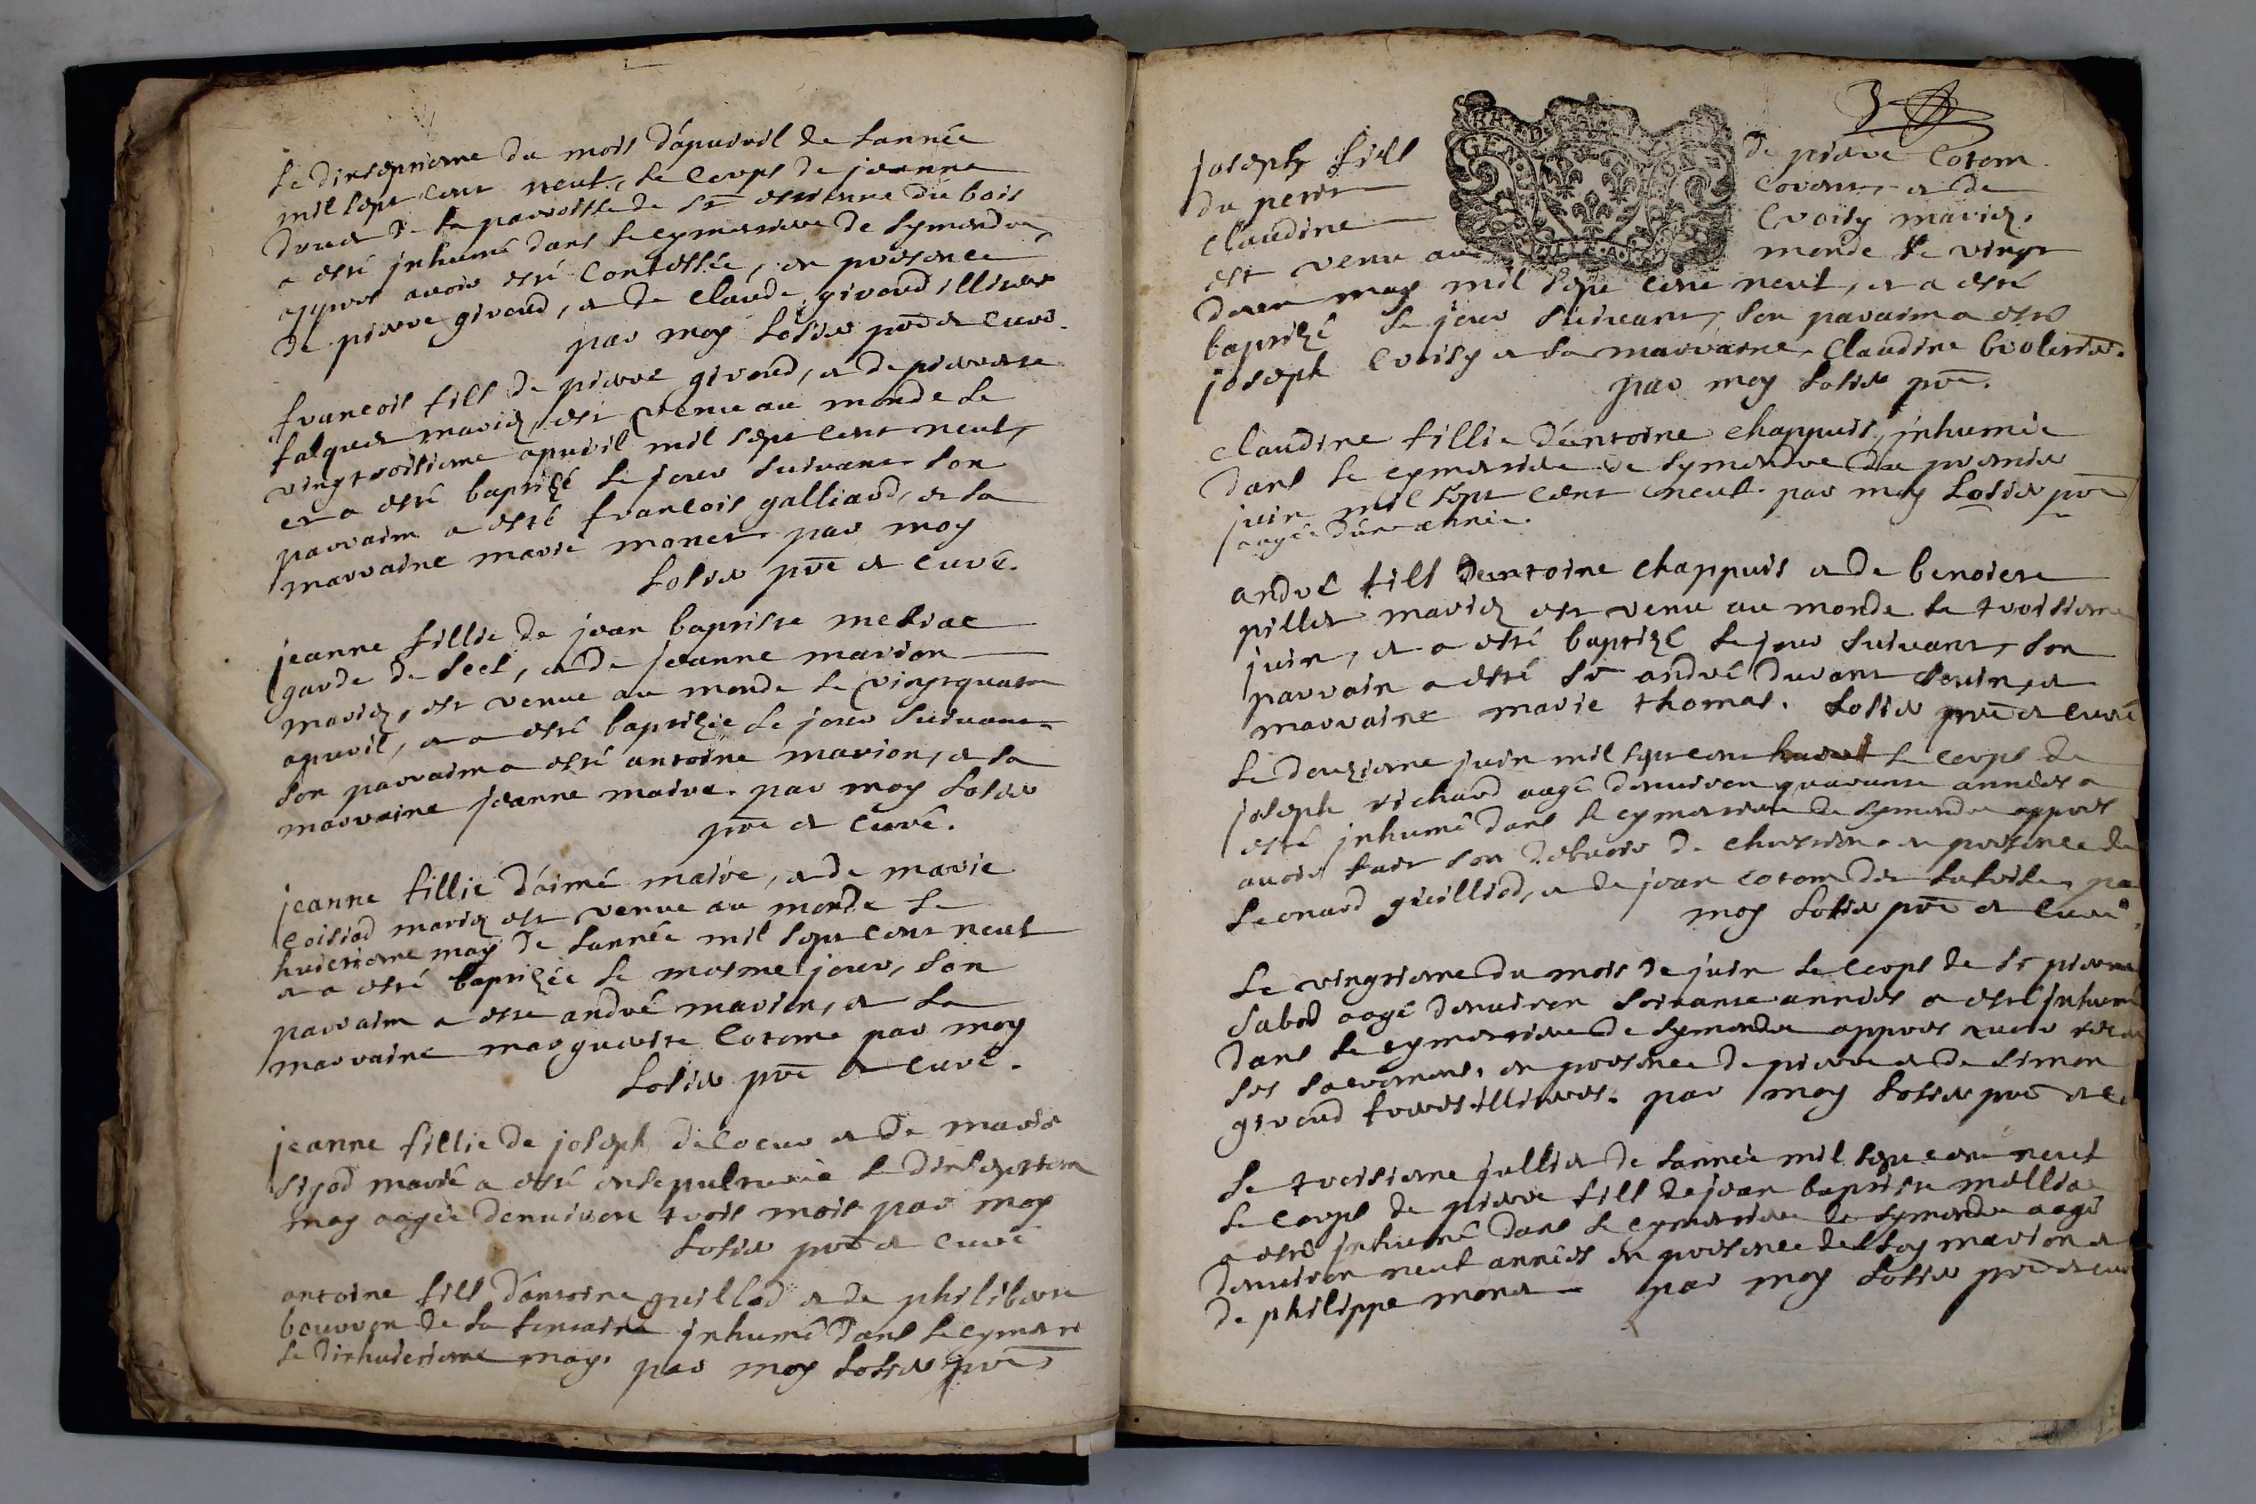 Le dixseptieme du mois d'apuril de l'année
mil sept cent neuf, le corps de jeanne
druet de la parroisse de st estienne du bois
a esté jnhumé dans le cymetiere de symandre
appres auoir esté confessée, en presence
de pierre giroud, et de claude giroud illiteres
par moy Losier pbre et curé.
francois fils de pierre giroud, et de pierrette
falquet mariez, est venu au monde le
vingtroisieme apuril mil sept cent neuf,
et a esté baptizé le jour suivant son
parrain a esté francois galliard, et sa
marraine marie monet par moy
Losier pbre et curé.
jeanne fillie de jean baptiste meliac
garde de seel, et de jeanne marion
mariez, est venue au monde le vingtquatre
apuril, et a esté baptizée le jour suivant
son parrain a esté antoine marion, et sa
marraine jeanne maire. par moy Losier
pbre et curé.
jeanne fillie d'aimé maire, et de marie
coisiad mariez est venue au monde le
huictieme may de l'année mil sept cent neuf
et a esté baptizée le mesme jour, son
parrain a esté andré marion, et sa
marraine marguerite cotome par moy
Losier pbre et curé.
jeanne fillie de joseph decoeur et de marie
sijod marié a esté ensepulturée le dixseptiem
may aagée denuiron trois mois par moy
Losier pbre et curé
antoine fils d'antoine guillod et de philiberte
bourron de la fontaine jnhumé dans le cymet
le dixhuictieme may. par moy Losier pbre
joseph fils de pierre cotom
du petit covent, et de
claudine croisy mariez.
est venu au monde le vingt
deux may mil sept cent neuf, et a esté
baptizé le jour suivant, son parraim a esté
joseph croisy et sa marraine, claudine brolerie.
par moy Losier pbre.
claudine fillie d'antoine chappuis, jnhumée
dans le cymetiere de symandre du premier
juin mil sept cent neuf. par moy Losier pbre
aagée d'une année.
andré fils d'antoine chappuis et de benoiste
pillet mariez est venu au monde le troisieme
juin, et a esté baptizé le jour suivant, son
parrain a esté sr andré durant seuin, et
marraine marie thomas. Losier pbre et curé
Le deuzieme juin mil sept cent neuf le corps de
joseph richard aagé denuiron quarante années a
esté jnhumé dans le cymetiere de symandre appres
auoir fait son debuoir de chrestien en presence de
Leonard guilliod, et de jean cotom dit par
moy Losier pbre et curé.
Le vingtieme du mois de juin le corps de sr pierre
sabod aagé denuiron soixante années a esté jnhumé
dans le cymetiere de symandre appres auoir receu
ses sacrements, en presence de pierre et de simon
giroud freres illiteres. par moy Losier pbre et c
Le troisieme jullet de l'année mil sept cent neuf
le corps de pierre fils de jean baptiste
a esté jnhumé dans le cymetiere de symandre aagé
denuiron neuf années en presence de marion et
de philippe monet par moy Losier pbre et curé